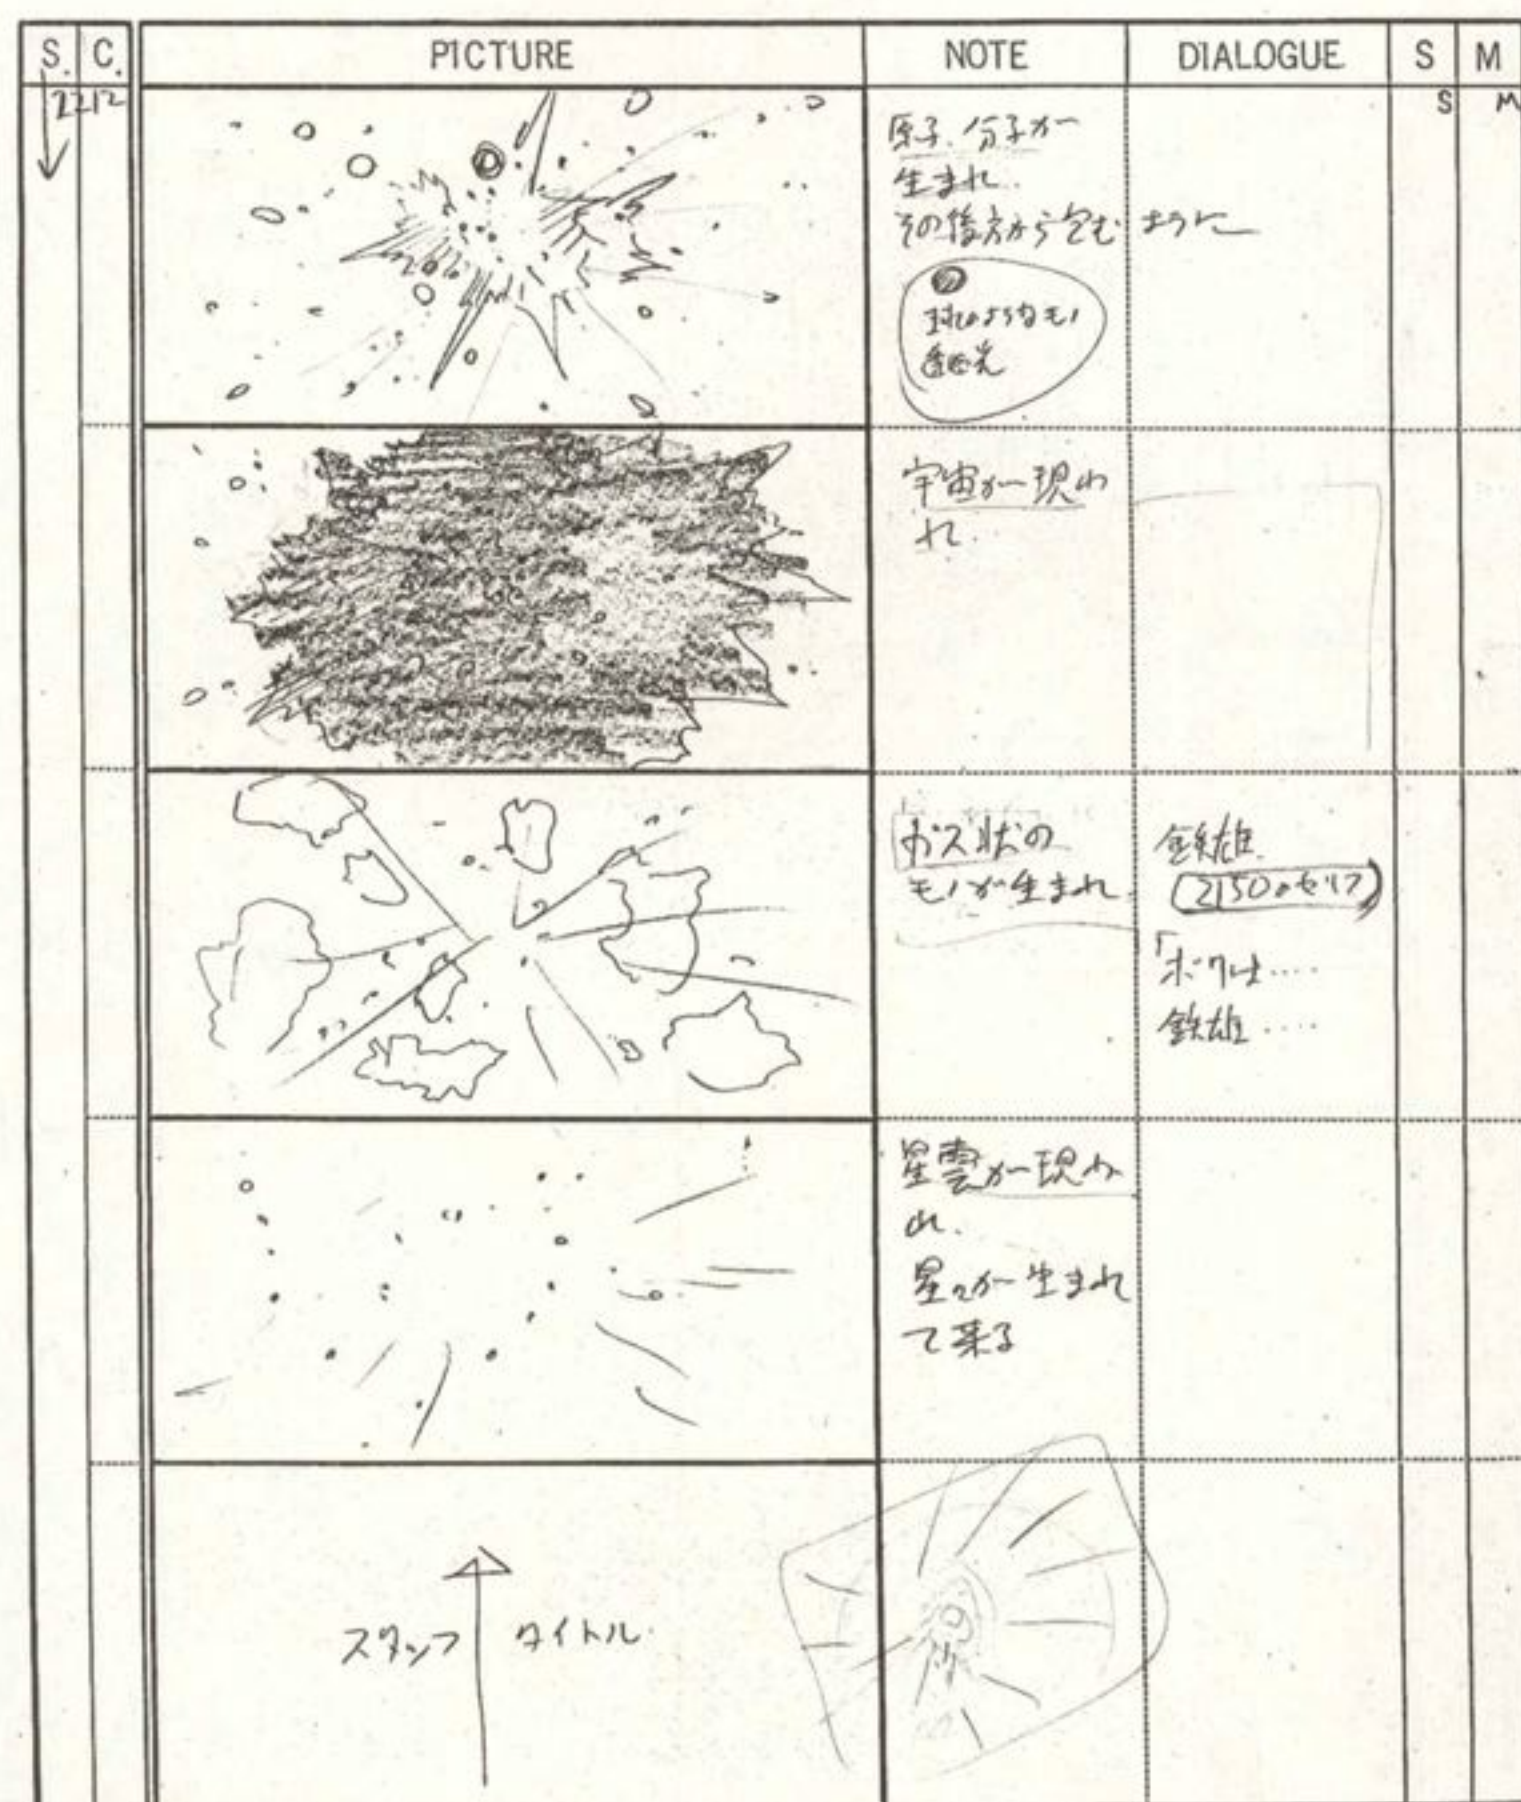 S. C. PICTURE NOTE DIALOGUE S M
2212
S M
原子、分子が
生まれ、
その後方から包む ように
玉のようなモノ
透過光
宇宙が現わ
れ、
ガス状の
モノが生まれ
鉄雄
2150のセリフ
「ボクは‥‥
鉄雄‥‥
星雲が現わ
れ、
星々が生まれ
て来る
スタッフ タイトル